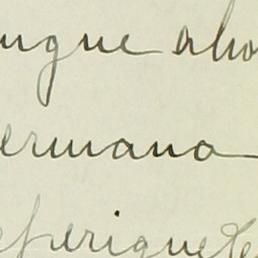 ungue aho
ermana
eferiguete